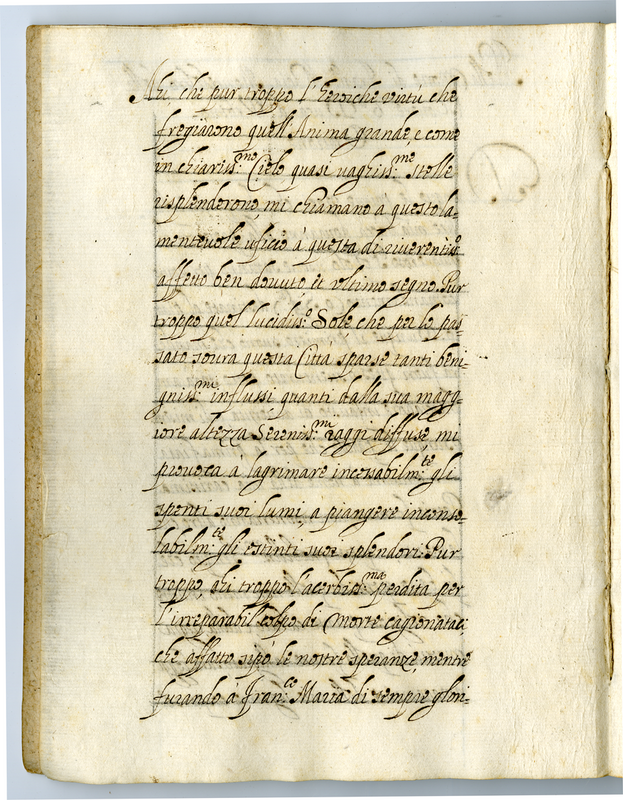 Ahi che pur troppo l'heroiche virtù che
fregiarono quell'Anima grande, e come
in chiariss:mo Cielo quasi vaghiss:me stelle
risplenderono, mi chiamano a questo la-
mentevole uficio à questa di riverentiss:o
affetto ben dovuto et ultimo segno. Pur
troppo quel lucidiss:o Sole, che per lo pas-
sato sovra questa Città sparse tanti beni-
gniss:mi influssi quanti dalla sua magg-
iore altezza Sereniss:mi raggi diffuse, mi
provoca à lagrimare incessabilm:te gli
spenti suoi lumi, a piangere inconso-
labilm:te gli estinti suoi splendori. Pur
troppo, ahi troppo l'acerbiss:ma perdita per
l'irreparabil colpo di Morte cagionatac;
che affatto sipò le nostre speranze, mentre
furando à Fran:co Maria di sempre glori-